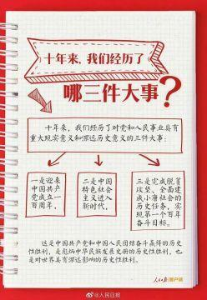 十年来，我们经历了
哪三件大事？
十年来，我们经历了对党和人民事业具有
重大现实意义和深远历史意义的三件大事：
一是迎来
中国共产
党成立一
百周年，
二是中国
特色社会
主义进入
新时代，
三是完成脱贫
攻坚、全面建
成小康社会的
历史任务，实
现第一个百年
奋斗目标。
这是中国共产党和中国人民团结奋斗赢得的历史
性胜利，是彪炳中华民族发展史册的历史性胜利，也
是对世界具有深远影响的历史性胜利。
人民日报 客户端
@人民日报